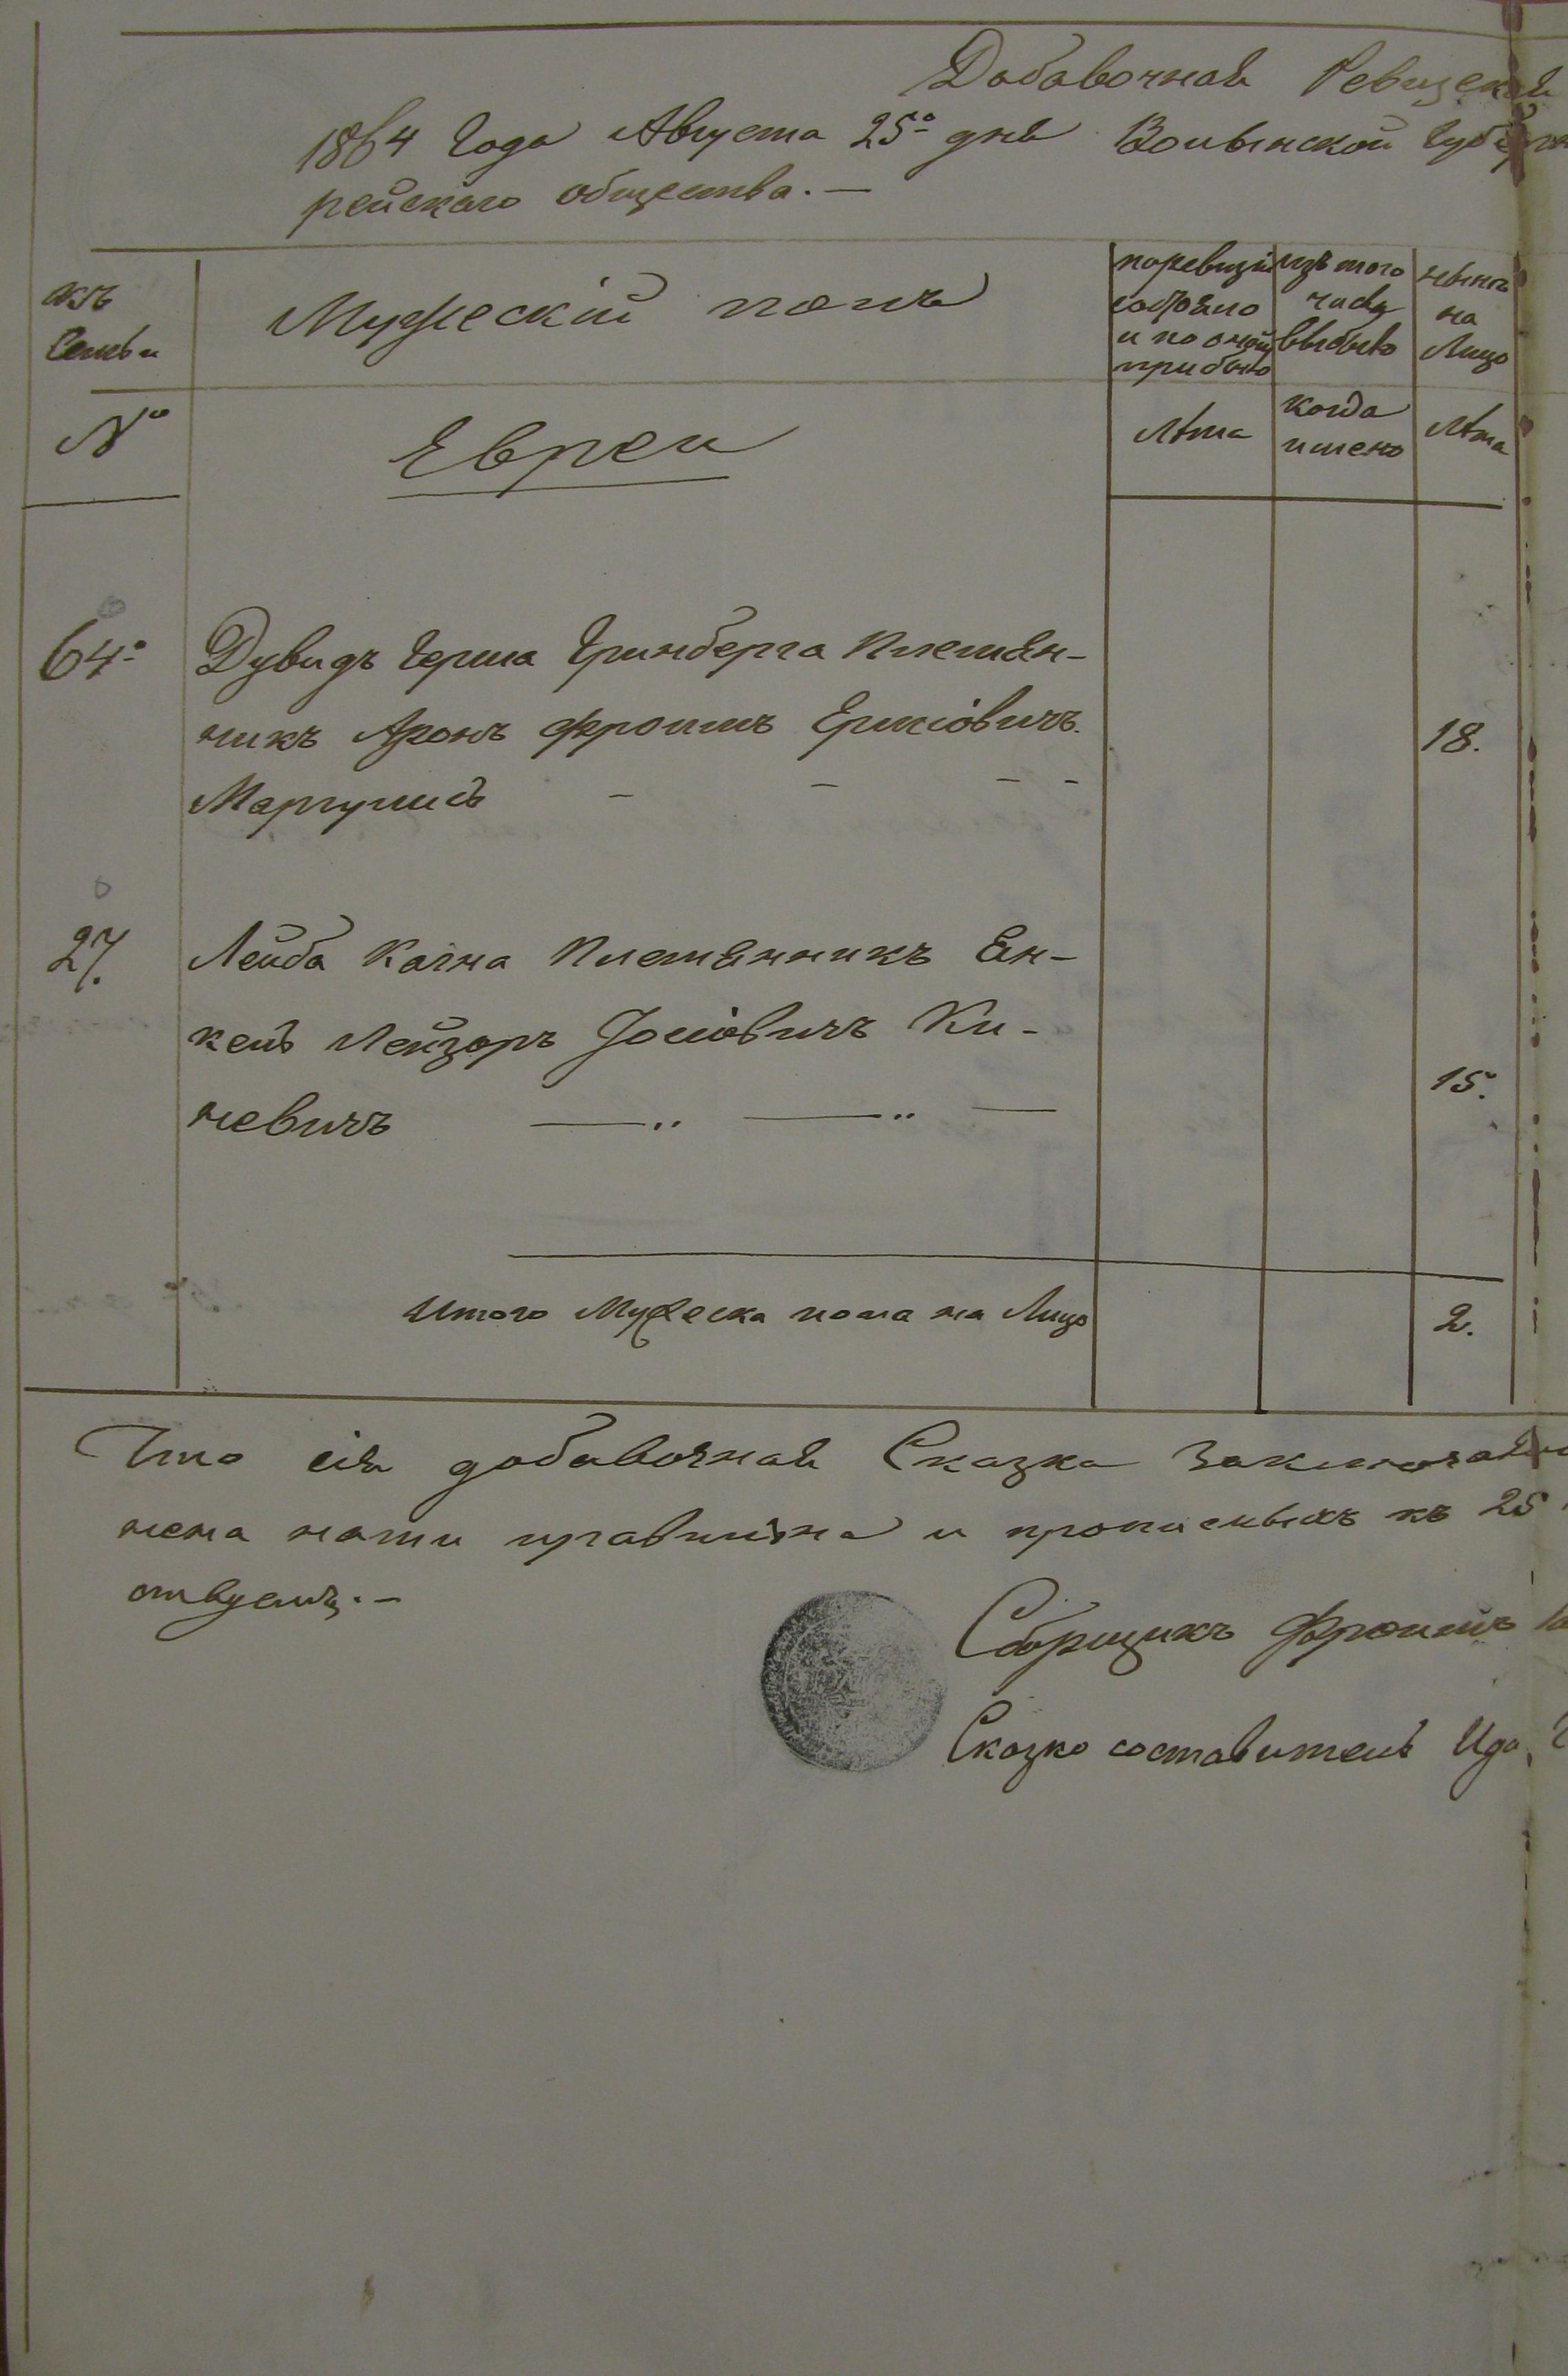 Добавочная Ревизская
1864 Года Августа 25го дня Волынской Губерн
рейскаго общества. —
къ
Семьи
Мужескій полъ
поревизіи
состояло
и по оной
прибыло
изъ того
числа
выбыло
нынѣ
на
Лицо
№
Евреи
Лѣта
когда
имено
Лѣта
64.
Дувидъ Герша Гринберга Племян-
никъ Аронъ Фроимъ Ершіовичъ.
18.
Маргулисъ - - - -
27.
Лейба Кагна Племянникъ Ян-
кель Лейзоръ Іосіовичъ Ки-
15.
невичъ — — —
Итого Мужеска пола на Лицо
2.
Что сія добавочная Сказка
нами правильно и къ 25
ствуемъ. —
Сборщикъ Фроимъ
Сказко составитель Ида